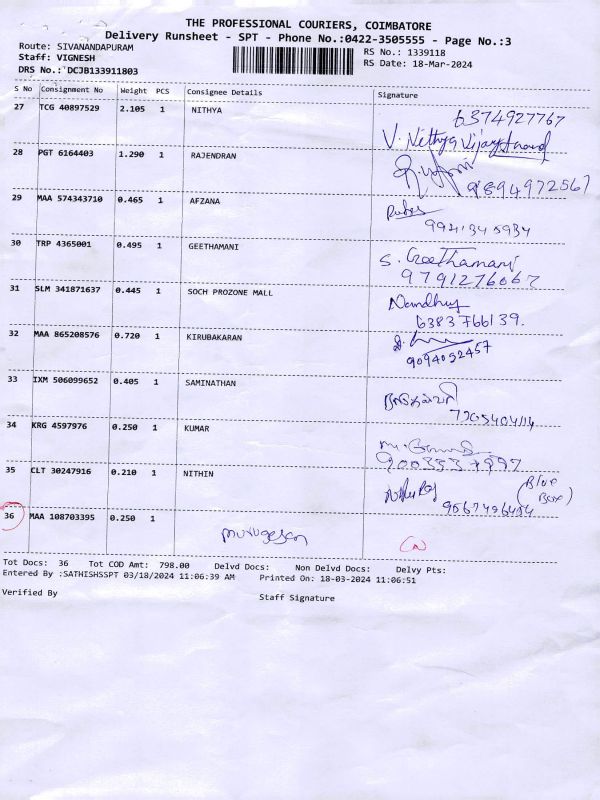 THE PROFESSIONAL COURIERS, COIMBATORE
Delivery Runsheet - SPT - Phone No.:0422-3505555 - Page No.:3
Route: SIVANANDAPURAM RS No.: 1339118
Staff: VIGNESH RS Date: 18-Mar-2024
DRS No.: DCJB133911803
S No Consignment No Weight PCS Consignee Details Signature
27 TCG 40897529 2.105 1 NITHYA 6374927767
V. Nethya VijayAnand
28 PGT 6164403 1.290 1 RAJENDRAN
9894972567
29 MAA 574343710 0.465 1 AFZANA
9941345934
30 TRP 4365001 0.495 1 GEETHAMANI S. Geethamani
9791276067
31 SLM 341871637 0.445 1 SOCH PROZONE MALL Nandhu
6383766139.
32 MAA 865208576 0.720 1 KIRUBAKARAN
9094052457
33 IXM 506099652 0.405 1 SAMINATHAN
34 KRG 4597976 0.250 1 KUMAR
35 CLT 30247916 0.210 1 NITHIN (Blue Box)
36 MAA 108703395 0.250 1 murugesan
Tot Docs: 36 Tot COD Amt: 798.00 Delvd Docs: Non Delvd Docs: Delvy Pts:
Entered By :SATHISHSSPT 03/18/2024 11:06:39 AM Printed On: 18-03-2024 11:06:51
Verified By Staff Signature